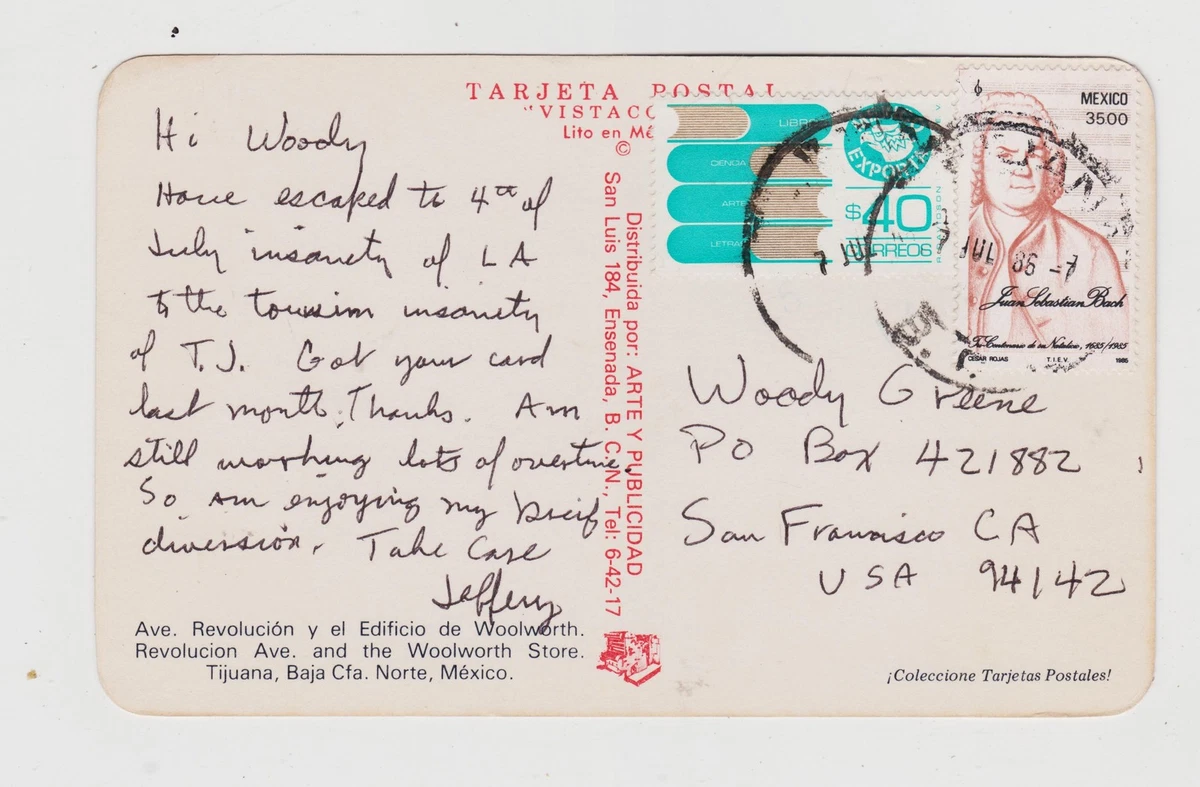 TARJETA POSTAL
"VISTACO
Lito en Mé
©
Hi Woody
Have escaped to 4th of
July insanity of LA
to the tourism insanity
of T.J. Got your card
last month. Thanks. Am
still working lots of overtime.
So am enjoying my brief
diversion. Take Care
Jeffery
Ave. Revolución y el Edificio de Woolworth.
Revolucion Ave. and the Woolworth Store.
Tijuana, Baja Cfa. Norte, México.
Distribuida por: ARTE Y PUBLICIDAD
San Luis 184, Ensenada, B. C. N., Tel: 6-42-17
LIBRO
CIENCIA
ARTE
LETRA
EXPORTA
$40
CORREOS
MEXICO
3500
Juan Sebastian Bach
Tri-Centenario de su Natalicio, 1685/1985
CESAR ROJAS T.I.E.V. 1985
JUL 86
Woody Greene
PO Box 421882
San Francisco CA
USA 94142
¡Coleccione Tarjetas Postales!